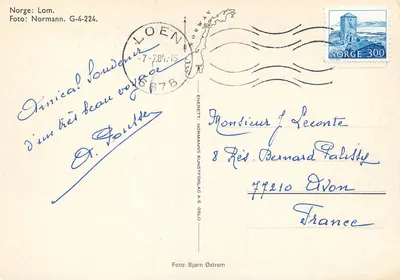 Norge: Lom.
Foto: Normann. G-4-224.
LOEN
NORWAY
6878
NORGE 300
Amical Souvenir
d'un très beau voyage
Monsieur J Leconte
8 Rés. Bernard Palissy
77210 Avon
France
ENERETT: NORMANNS KUNSTFORLAG A.S. OSLO
Foto: Bjørn Østrem